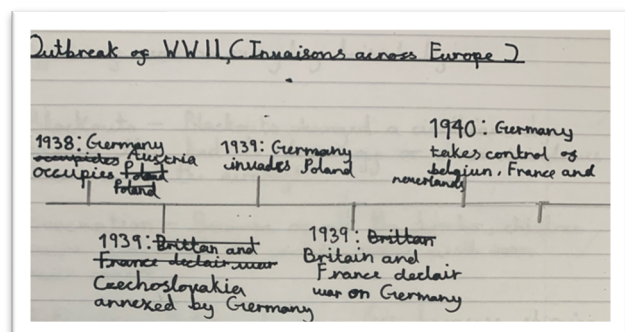 Outbreak of WWII, (Invaisons across Europe)
1938: Germany
occupides Austria
occupies Poland
Poland
1939: Germany
invades Poland
1940: Germany
takes control of
belgiun, France and
neverlands
1939: Brittan and
France declair war
Czechoslovakia
annexed by Germany
1939: Brittan
Britain and
France declair
war on Germany